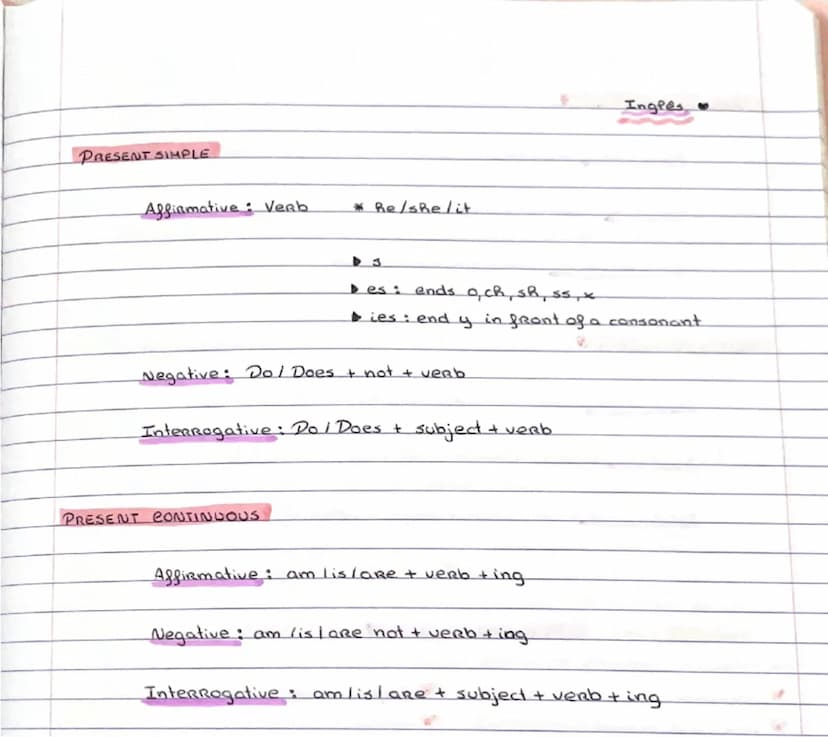 Inglês ♥
PRESENT SIMPLE
Affirmative: Verb * he/she/it
▶ s
▶ es: ends o, ch, sh, ss, x
▶ ies: end y in front of a consonant
Negative: Do/Does + not + verb
Interrogative: Do/Does + subject + verb
PRESENT CONTINUOUS
Affirmative: am/is/are + verb + ing
Negative: am/is/are not + verb + ing
Interrogative: am/is/are + subject + verb + ing